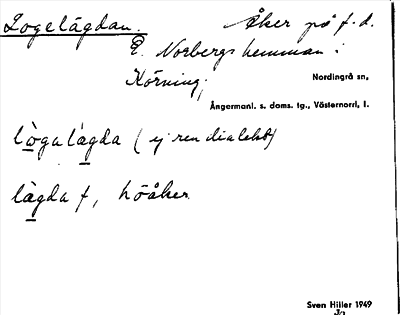 Logelägdan. Åker på f.d.
E. Norbergs hemman i
Körning,
Nordingrå sn,
Ångermanl. s. doms. tg., Västernorrl. l.
lògalàgda (ej ren dialekt)
làgda f, höåker
Sven Hiller 1949